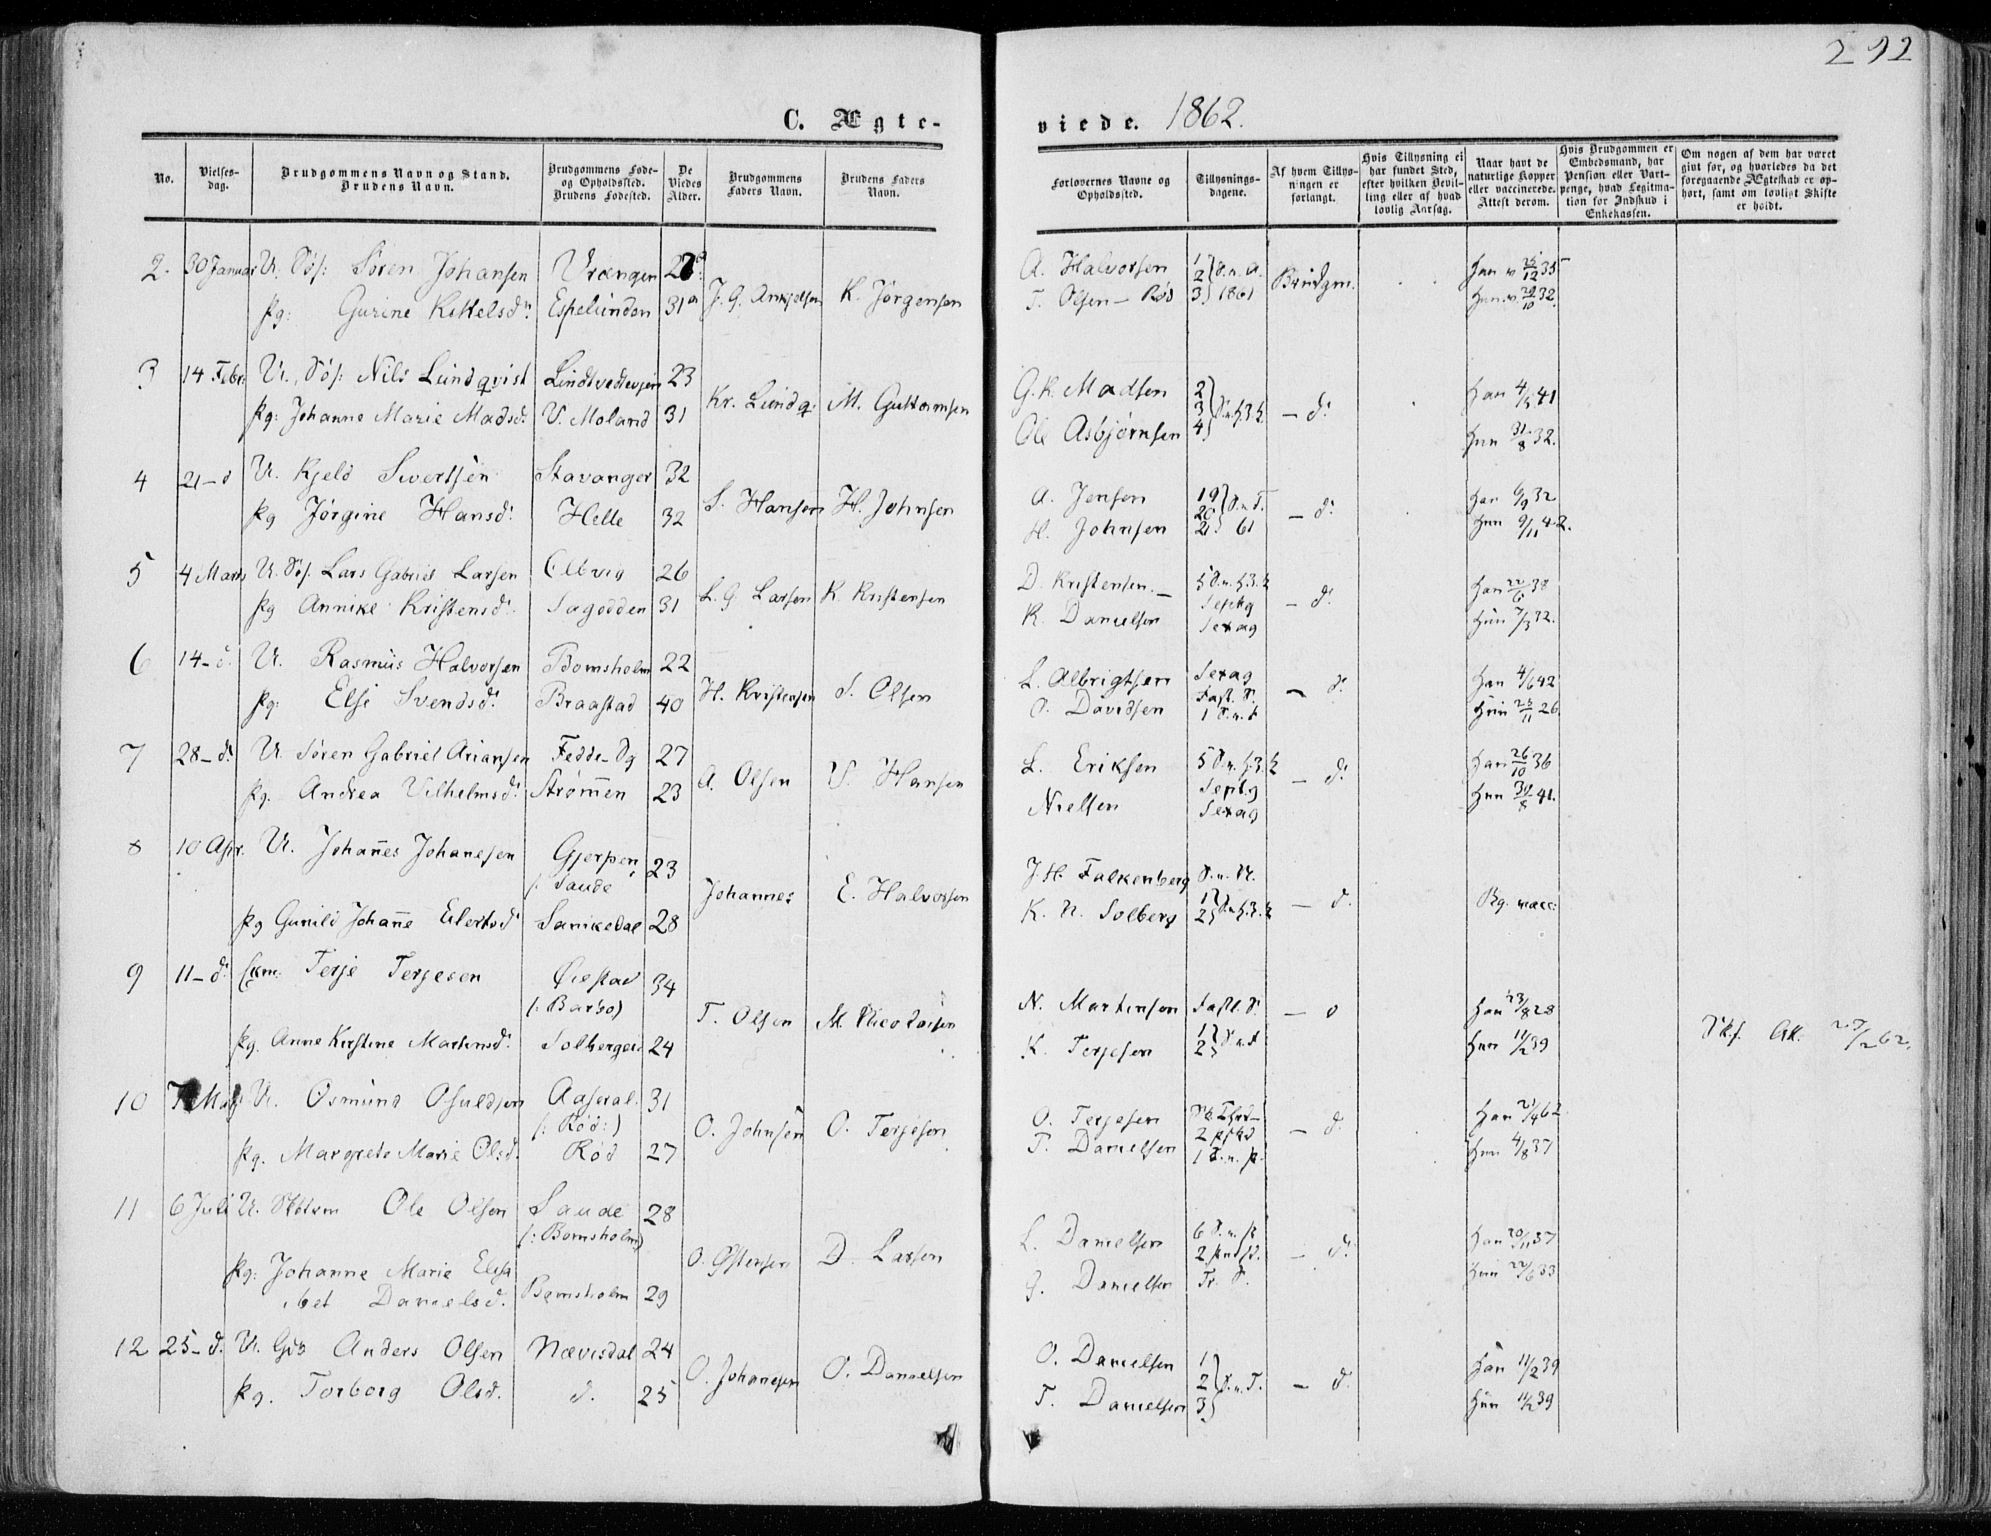 292
C. Ægteviede. 1862.
No.
Vielsesdag.
Brudgommens Navn og Stand. Brudens Navn.
Brudgommens Føde- og Opholdssted. Brudens Fødested.
De Viedes Alder.
Brudgommens Faders Navn.
Brudens Faders Navn.
Forlovernes Navne og Opholdssted.
Tillysningsdagene.
Af hvem Tillysningen er forlangt.
Hvis Tillysning ei har fundet Sted, efter hvilken Bevilling eller af hvad lovlig Aarsag.
Naar havt de naturlige Kopper eller vaccinerede. Attest derom.
Hvis Brudgommen er Embedsmand, har Pension eller Vartpenge, hvad Legitimation for Indskud i Enkekassen.
Om nogen af dem har været givt før, og hvorledes da det foregaaende Ægteskab er ophørt, samt om lovligt Skifte er holdt.
2. 30 Januar U. Søf: Søren Johansen Vrængen J. G. Ankjelsen K. Jørgensen A. Halvorsen 1 2 3 S. n. A. 1861 Brudgm. Han v 12 35
pg: Gurine Kittelsd: Espelunden 31 T. Olsen - Rød Hun v. 29/10 32.
3 14 Febr: U. Søf: Nils Lundqvist 23 Kr. Lundq: M. Guttormsen G. K. Madsen 2 3 4 S. n. H. 3. K. - d: Han 4/5 41
pg: Johanne Marie Madsd: V. Moland 31 Ole Asbjørnsen Hun 31/8 32.
4 21 - d U. Kjeld Sivertsen Stavanger 32 S. Hansen H. Johnsen A. Jensen 19 20 21 S. n. T. 61 - d: Han 6/9 32
pg Jørgine Hansd: Helle 32 H. Johnsen Hun 9/11 42.
5 4 Marts U. Søf. Lars Gabriel Larsen Elbvig 26 L. G. Larsen K. Kristensen D. Kristensen - 5 S. n. H. 3. K Septg Sexag - d: Han 22/6 38
pg Annike Kristensd: Sagodden 31 K. Danielsen Hun 7/3 32.
6 14 - d. U. Rasmus Halvorsen Bomsholm 22 H. Kristensen S. Olsen L. Albrigtsen Sexag Fast. S. 1 S. n. F - d: Han 4/6 42
pg: Else Svendsd: Braastad 40 O. Davidsen Hun 25/11 26.
7 28 - d: U. Søren Gabriel Ariansen Fedde - Sg 27 A. Olsen V. Hansen L. Eriksen 5 S. n. H. 3. K Septg Sexag - d: Han 26/10 36
pg. Andrea Vilhelmsd: Strømmen 23 Nielsen Hun 30/8 41.
8 10 Apr. U. Johannes Johanesen Gjerpen /: Saude 23 Johannes E. Halvorsen J. H. Falkenberg S. n. N. 1 2 S. n. H. 3. K - d. Bg. vacc:
pg Gunild Johanne Eilertsd Sanikedal 28 K. N. Solberg
9 11 - d: Ekm: Terje Terjesen Øiestad (: Barbo) 34 T. Olsen M. Nicolaisen N. Martinsen Fastl. S. 1 2 S. n. F - d Han 23/8 28 Skf. Att. 25/2 62.
pg. Anne Kirstine Martinsd: Solberget 24 K. Terjesen Hun 11/2 39
10 Mai U. Osmund Osuldsen Aaseral. (: Rød:) 31 O. Johnsen O. Terjesen O. Terjesen 2 1 S. n. p. - d. Han 21/4 62
pg. Margrete Marie Olsd. Rød 27 T. Danielsen Hun 4/8 37
11 6 Juli U. Ole Olsen Saude (: Bomsholm) 28 O. Østensen D. Larsen L. Danielsen 6 S. n. p 2 pindsd. Tr. S. - d: Han 20/11 37
pg: Johanne Marie Elisabet Danielsd. Bomsholm 29 G. Danielsen Hun 22/6 33
12 25 - d. U. Gb Anders Olsen Nævisdal 24 O. Johanesen O. Danielsen O. Danielsen 1 2 3 S. n. T. - d. Han 11/2 39
pg. Torborg Olsd. d. 25 T. Danielsen Hun 11/2 39